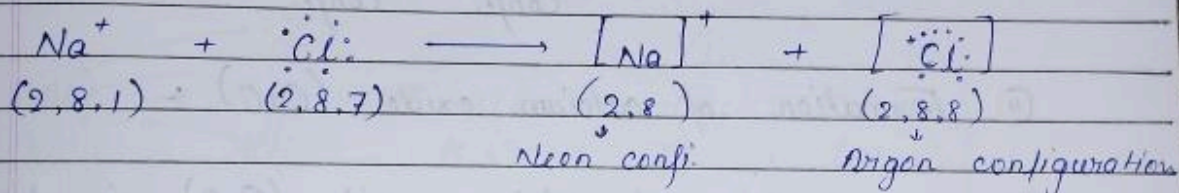 Na⁺ + :Cl: ⟶ [Na]⁺ + [:Cl:]
(2,8,1) (2,8,7) (2,8) (2,8,8)
↓ ↓
Neon confi. Argon configuration